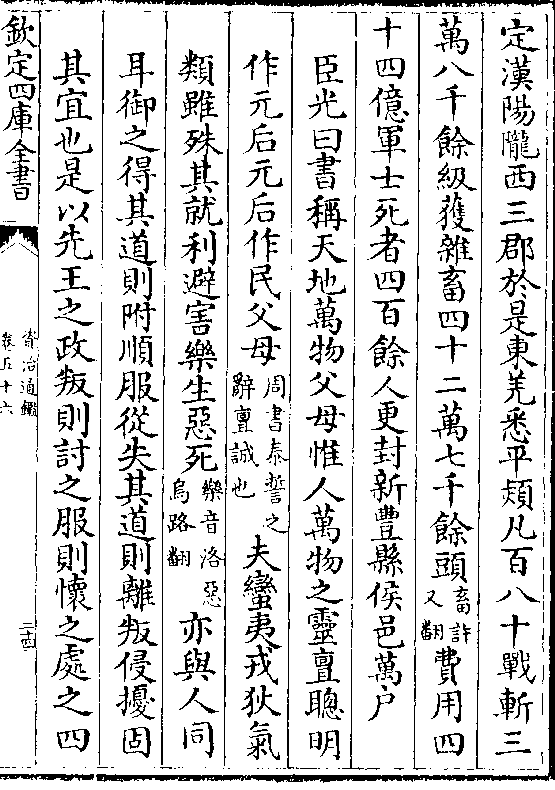 定漢陽隴西三郡於是東羌悉平熲凡百八十戰斬三
萬八千餘級獲雜畜四十二萬七千餘頭畜許又翻費用四
十四億軍士死者四百餘人更封新豐縣侯邑萬户
臣光曰書稱天地萬物父母惟人萬物之靈亶聰明
作元后元后作民父母周書泰誓之辭亶誠也夫蠻夷戎狄氣
類雖殊其就利避害樂生惡死樂音洛惡烏路翻亦與人同
耳御之得其道則附順服從失其道則離叛侵擾固
其宜也是以先王之政叛則討之服則懷之處之四
欽定四庫全書
資治通鑑
卷五十六
二十四